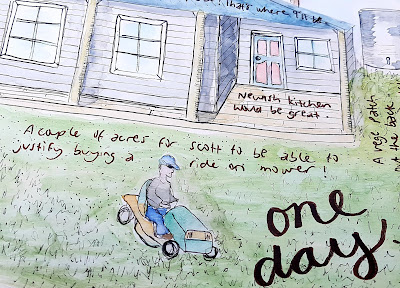 that's where I'll be.
Newish kitchen
would be great.
A couple of acres for scott to be able to
justify buying a ride on mower!
A vege patch
out the back
one
day